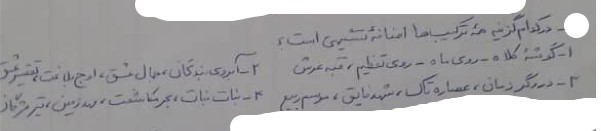 - در کدام گزینه همهٔ ترکیب‌ها اضافهٔ تشبیهی است؟
۱- گوشهٔ کلاه - روی ماه - روی تعظیم، قبه عرش ۲- آبروی بندگان، جمال عشق، اوج بلاغت، تفسیر عشق
۳- درودگر زمان، عصاره تاک، شهد فایق، موسم ربیع ۴- نبات نبات، بحر مکاشفت، مهد زمین، تیر مژگان